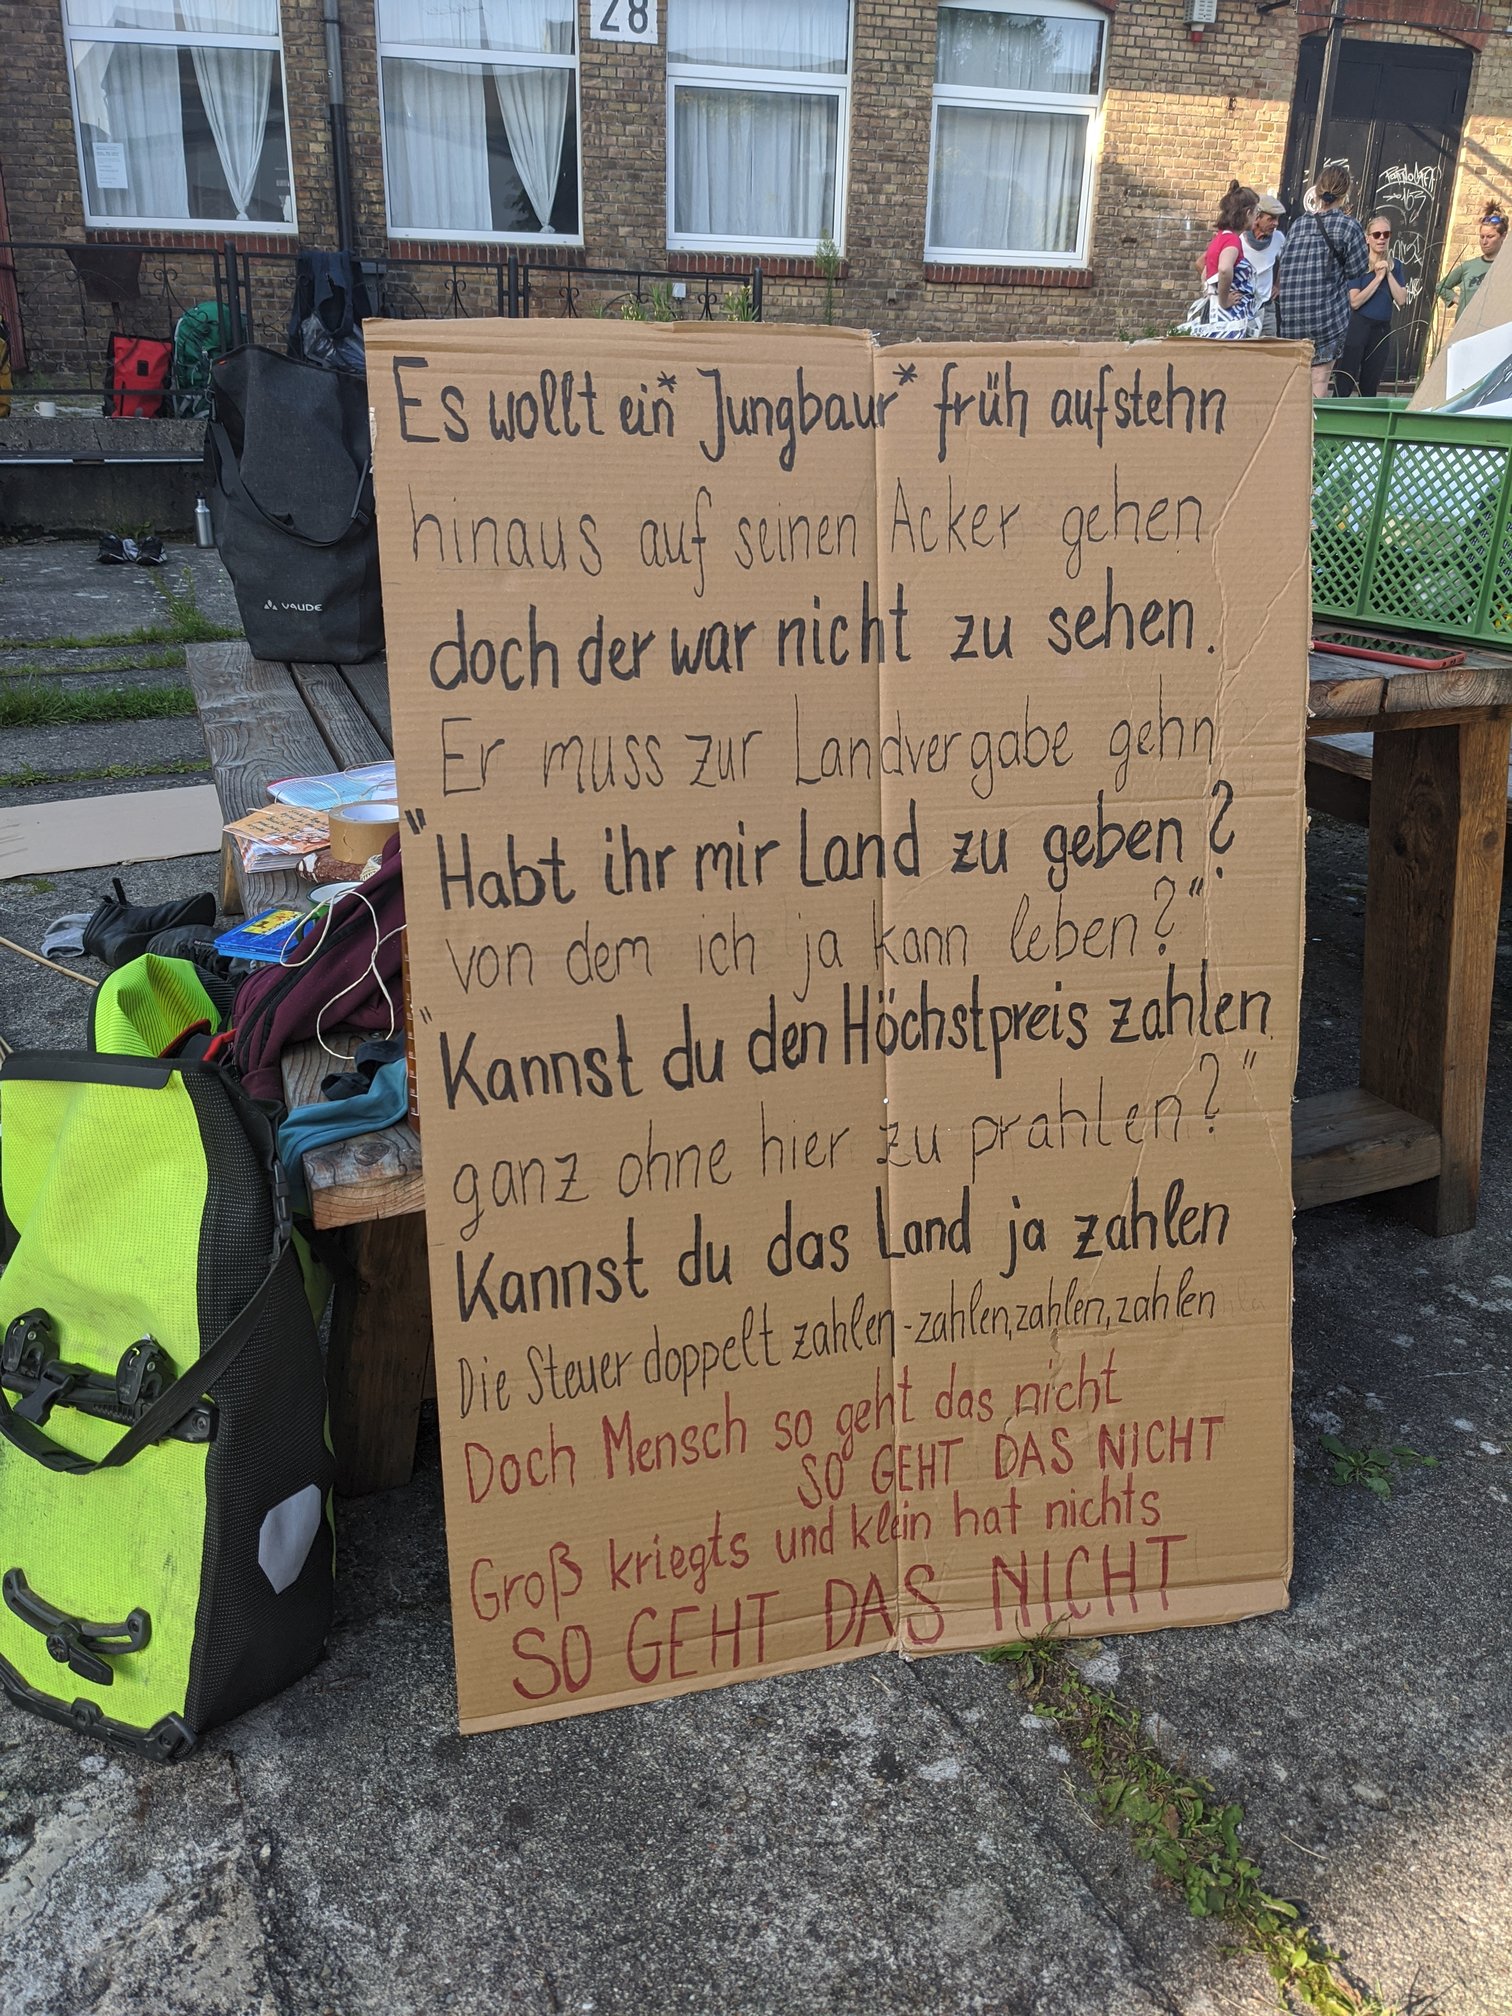 28
Es wollt ein* Jungbaur* früh aufstehn
hinaus auf seinen Acker gehen
doch der war nicht zu sehen.
Er muss zur Landvergabe gehn
"Habt ihr mir Land zu geben?
von dem ich ja kann leben?"
"Kannst du den Höchstpreis zahlen
ganz ohne hier zu prahlen?"
Kannst du das Land ja zahlen
Die Steuer doppelt zahlen - zahlen, zahlen, zahlen
Doch Mensch so geht das nicht
SO GEHT DAS NICHT
Groß kriegts und klein hat nichts
SO GEHT DAS NICHT
VAUDE